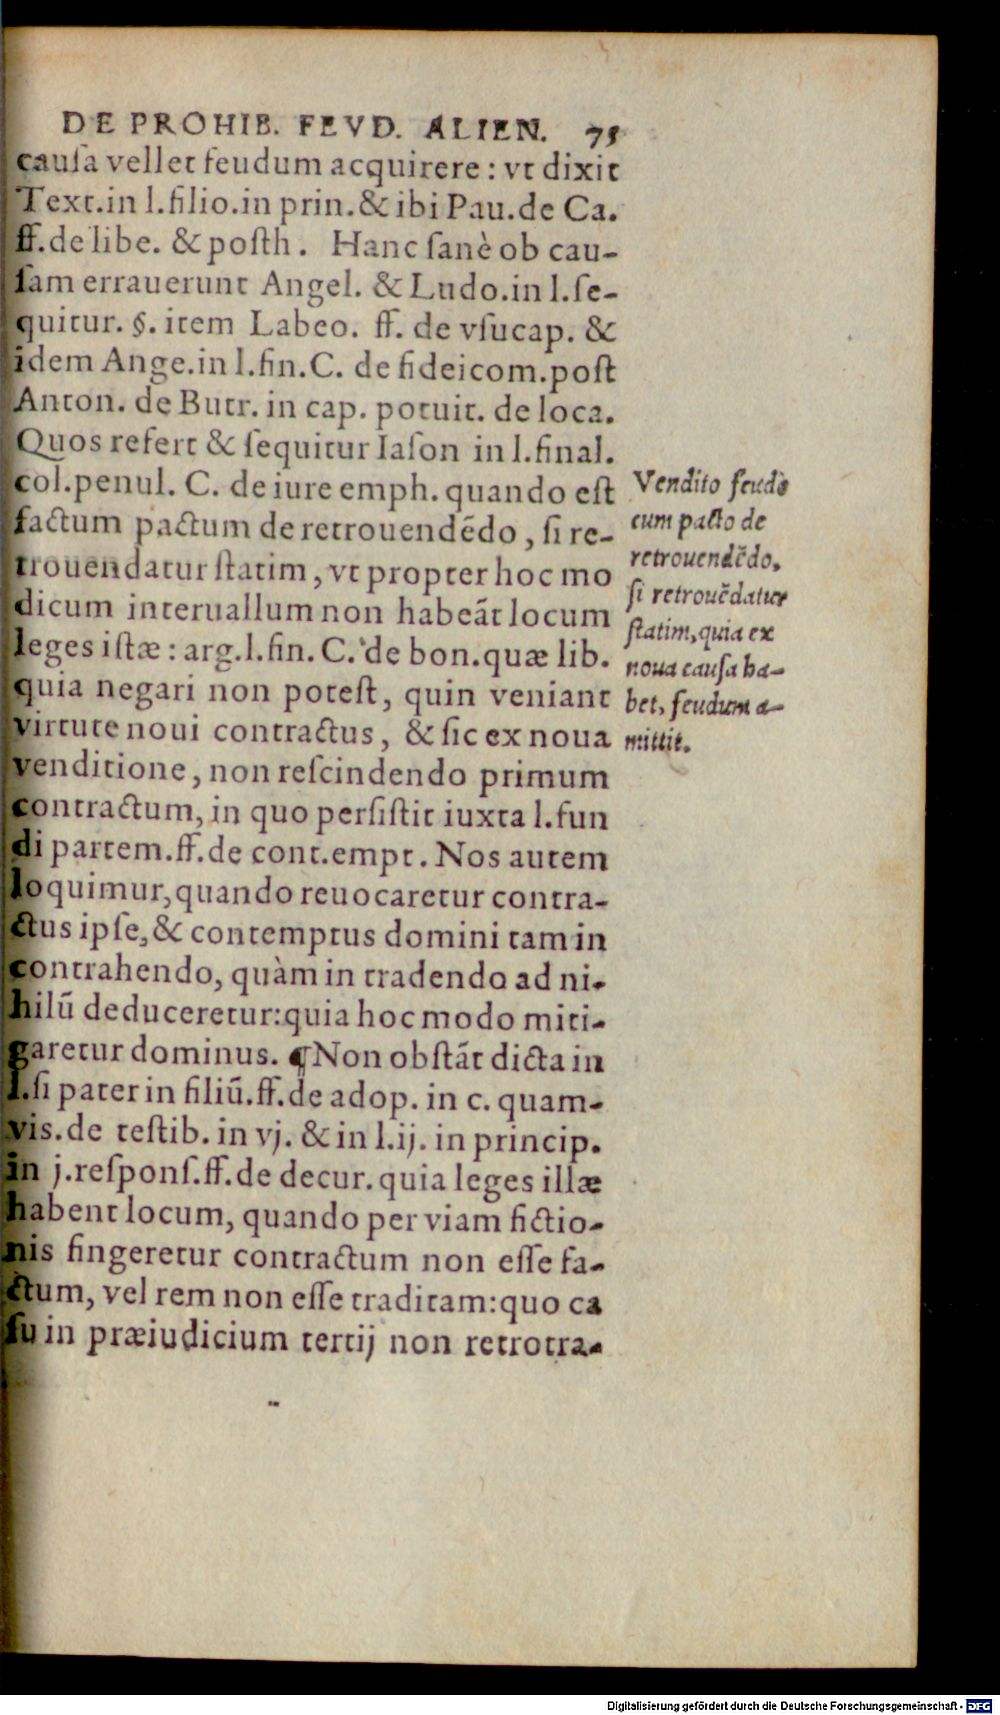 DE PROHIB. FEVD. ALIEN. 75
cauſa vellet feudum acquirere : vt dixit
Text.in l.filio.in prin.& ibi Pau.de Ca.
ff.de libe. & poſth. Hanc ſanè ob cau-
ſam errauerunt Angel. & Ludo.in l.ſe-
quitur. §. item Labeo. ff. de vſucap. &
idem Ange.in l.fin.C. de fideicom.poſt
Anton. de Butr. in cap. potuit. de loca.
Quos refert & ſequitur Iaſon in l.final.
col.penul. C. de iure emph. quando eſt
factum pactum de retrouendẽdo, ſi re-
trouendatur ſtatim, vt propter hoc mo
dicum interuallum non habeãt locum
leges iſtæ : arg.l.fin. C. de bon.quæ lib.
quia negari non poteſt, quin veniant
virtute noui contractus, & ſic ex noua
venditione, non reſcindendo primum
contractum, in quo perſiſtit iuxta l.fun
di partem.ff.de cont.empt. Nos autem
loquimur, quando reuocaretur contra-
ctus ipſe, & contemptus domini tam in
contrahendo, quàm in tradendo ad ni-
hilũ deduceretur:quia hoc modo miti-
garetur dominus. ¶Non obſtãt dicta in
l.ſi pater in filiũ.ff.de adop. in c. quam-
vis.de teſtib. in vj. & in l.ij. in princip.
in j.reſponſ.ff.de decur. quia leges illæ
habent locum, quando per viam fictio-
nis fingeretur contractum non eſſe fa-
ctum, vel rem non eſſe traditam:quo ca
ſu in præiudicium tertij non retrotra-
Vendito feudo
cum pacto de
retrouendẽdo,
ſi retrouẽdatur
ſtatim, quia ex
noua cauſa ha-
bet, feudum a-
mittit.
Digitalisierung gefördert durch die Deutsche Forschungsgemeinschaft - DFG